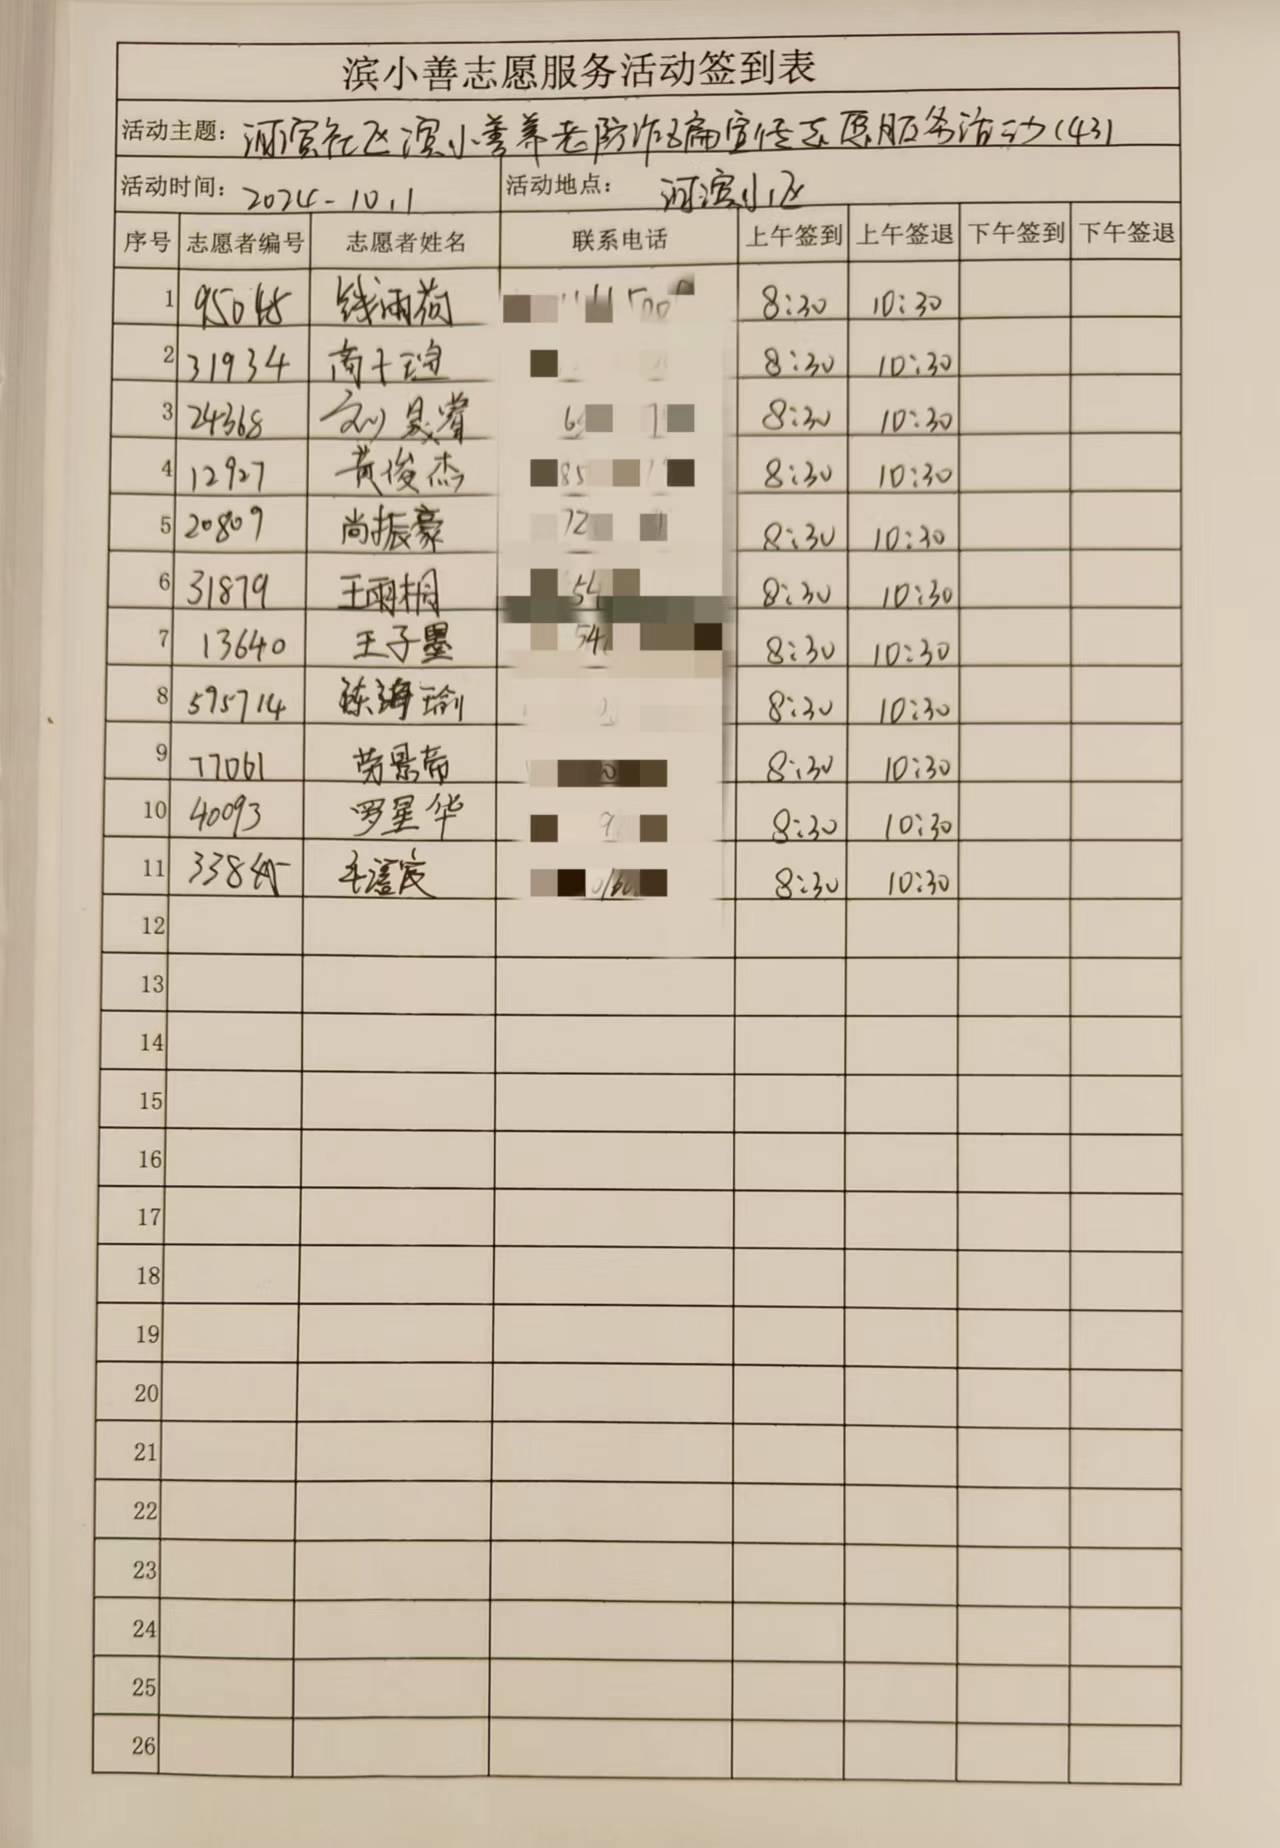 滨小善志愿服务活动签到表
活动主题: 河滨社区滨小善养老防诈骗宣传志愿服务活动(43)
活动时间: 2024-10.1 活动地点: 河滨小区
序号 志愿者编号 志愿者姓名 联系电话 上午签到 上午签退 下午签到 下午签退
1 钱雨荷 8:30 10:30
2 31934 8:30 10:30
3 24368 刘晟睿 8:30 10:30
4 12927 黄俊杰 8:30 10:30
5 20809 尚振豪 8:30 10:30
6 31879 王雨桐 8:30 10:30
7 13640 王子墨 8:30 10:30
8 595714 陈海瑜 8:30 10:30
9 77061 劳景帝 8:30 10:30
10 40093 罗星华 8:30 10:30
11 8:30 10:30
12
13
14
15
16
17
18
19
20
21
22
23
24
25
26